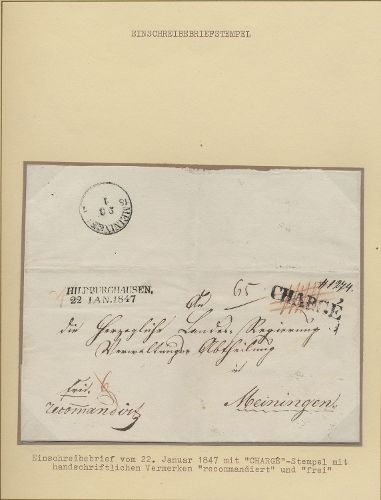 EINSCHREIBEBRIEFSTEMPEL
MEININGEN
23
1
HILDBURGHAUSEN,
22 IAN. 1847
65
CHARGÉ
An
die Herzogliche Landes-Regierung
Verwaltungs Abtheilung
in
Meiningen.
frei.
recommandirt
Einschreibebrief vom 22. Januar 1847 mit "CHARGÉ"-Stempel mit
handschriftlichen Vermerken "recommandiert" und "frei"